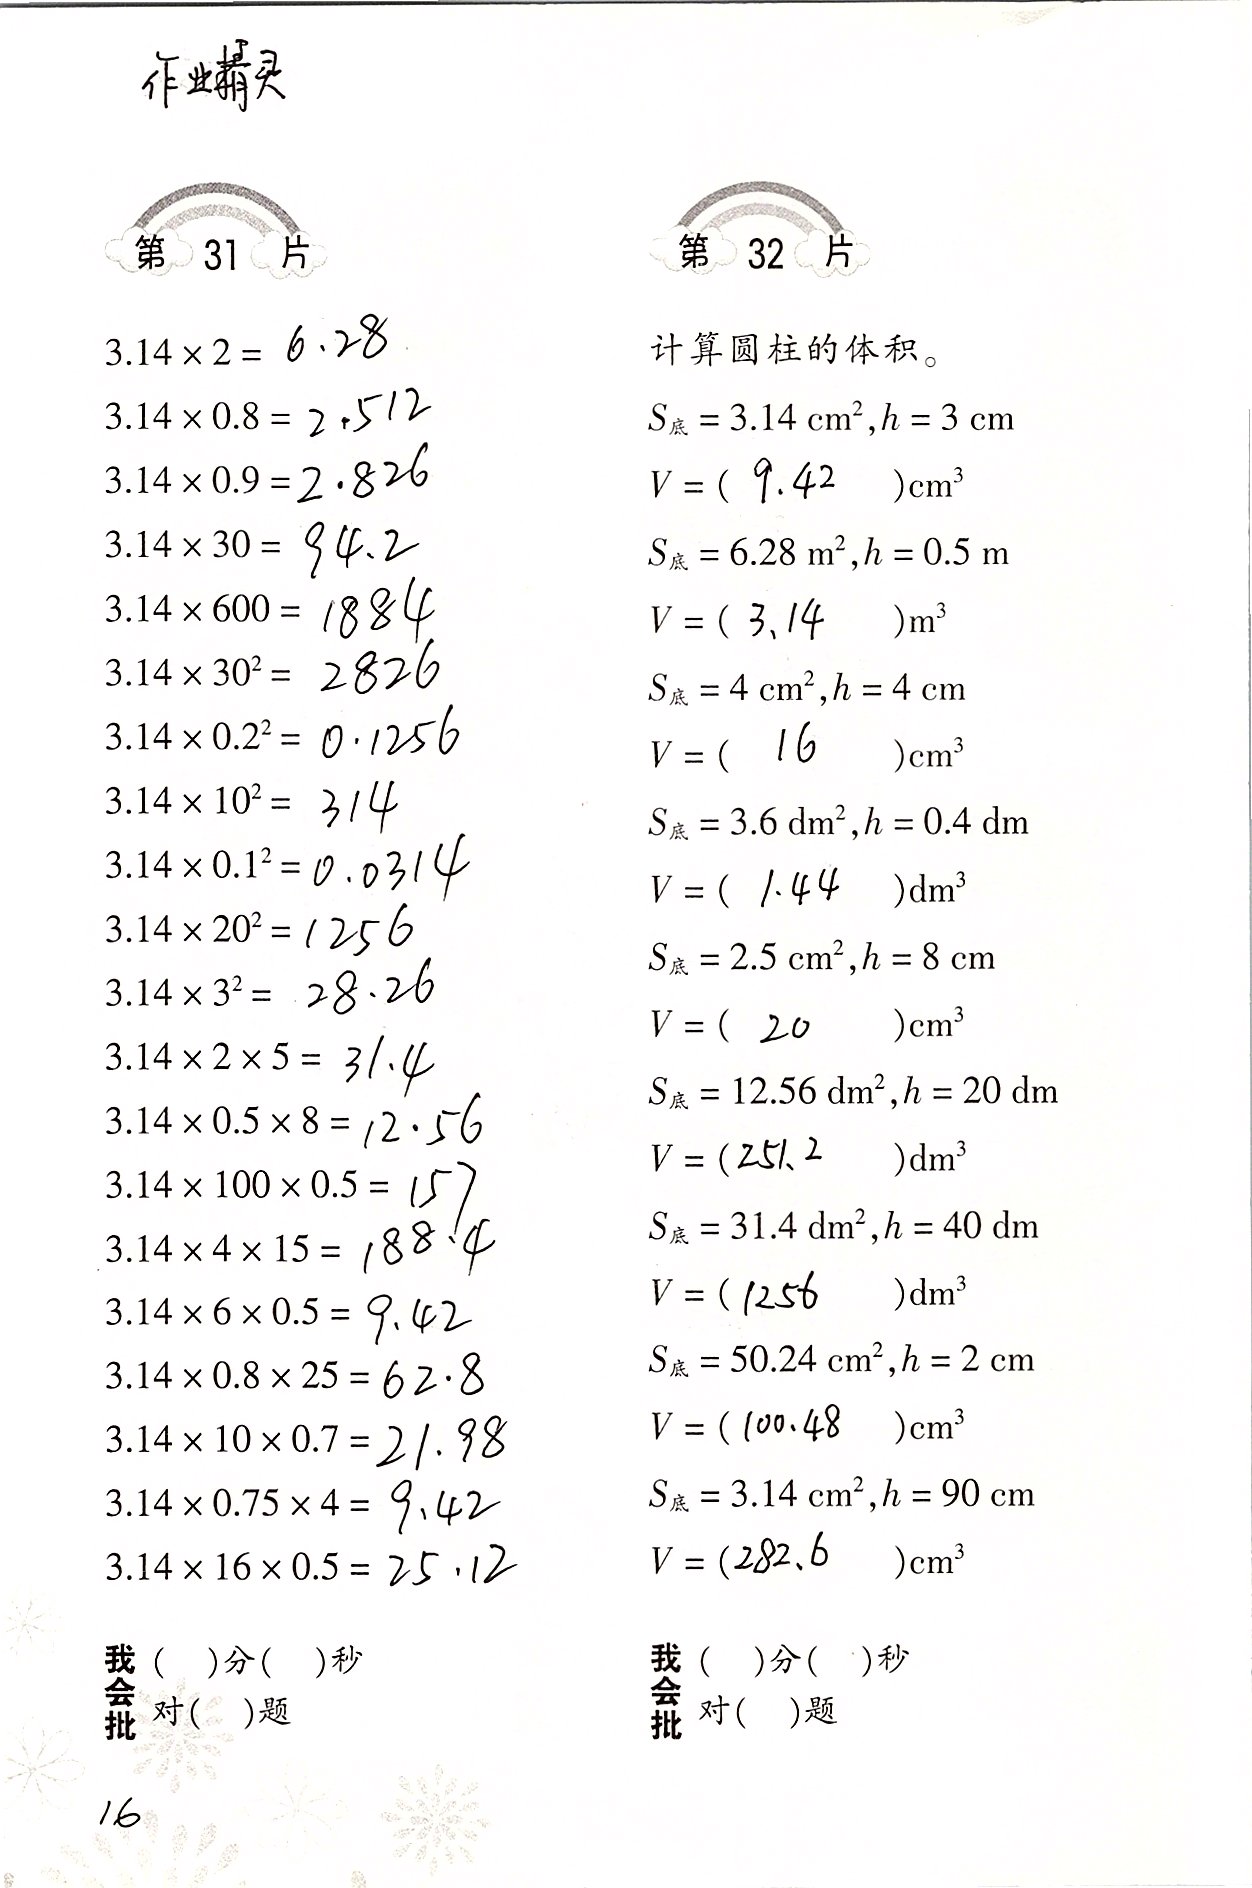 作业精灵
第 31 片
3.14 × 2 = 6.28
3.14 × 0.8 = 2.512
3.14 × 0.9 = 2.826
3.14 × 30 = 94.2
3.14 × 600 = 1884
3.14 × 30² = 2826
3.14 × 0.2² = 0.1256
3.14 × 10² = 314
3.14 × 0.1² = 0.0314
3.14 × 20² = 1256
3.14 × 3² = 28.26
3.14 × 2 × 5 = 31.4
3.14 × 0.5 × 8 = 12.56
3.14 × 100 × 0.5 = 157
3.14 × 4 × 15 = 188.4
3.14 × 6 × 0.5 = 9.42
3.14 × 0.8 × 25 = 62.8
3.14 × 10 × 0.7 = 21.98
3.14 × 0.75 × 4 = 9.42
3.14 × 16 × 0.5 = 25.12
我会批
( )分( )秒
对( )题
第 32 片
计算圆柱的体积。
S底 = 3.14 cm²,h = 3 cm
V = ( 9.42 )cm³
S底 = 6.28 m²,h = 0.5 m
V = ( 3.14 )m³
S底 = 4 cm²,h = 4 cm
V = ( 16 )cm³
S底 = 3.6 dm²,h = 0.4 dm
V = ( 1.44 )dm³
S底 = 2.5 cm²,h = 8 cm
V = ( 20 )cm³
S底 = 12.56 dm²,h = 20 dm
V = ( 251.2 )dm³
S底 = 31.4 dm²,h = 40 dm
V = ( 1256 )dm³
S底 = 50.24 cm²,h = 2 cm
V = ( 100.48 )cm³
S底 = 3.14 cm²,h = 90 cm
V = ( 282.6 )cm³
我会批
( )分( )秒
对( )题
16